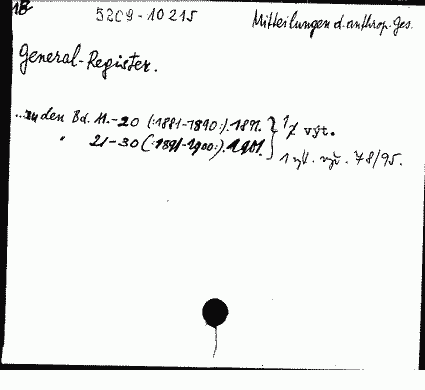 1B 5209-10215 Mitteilungen d. anthrop. Ges.
General-Register.
...zu den Bd. 11.-20 (:1881-1890:). 1891. } 1 výt.
" 21-30 (:1891-1900:). 1901. } 1 výt. vyř. 78/95.